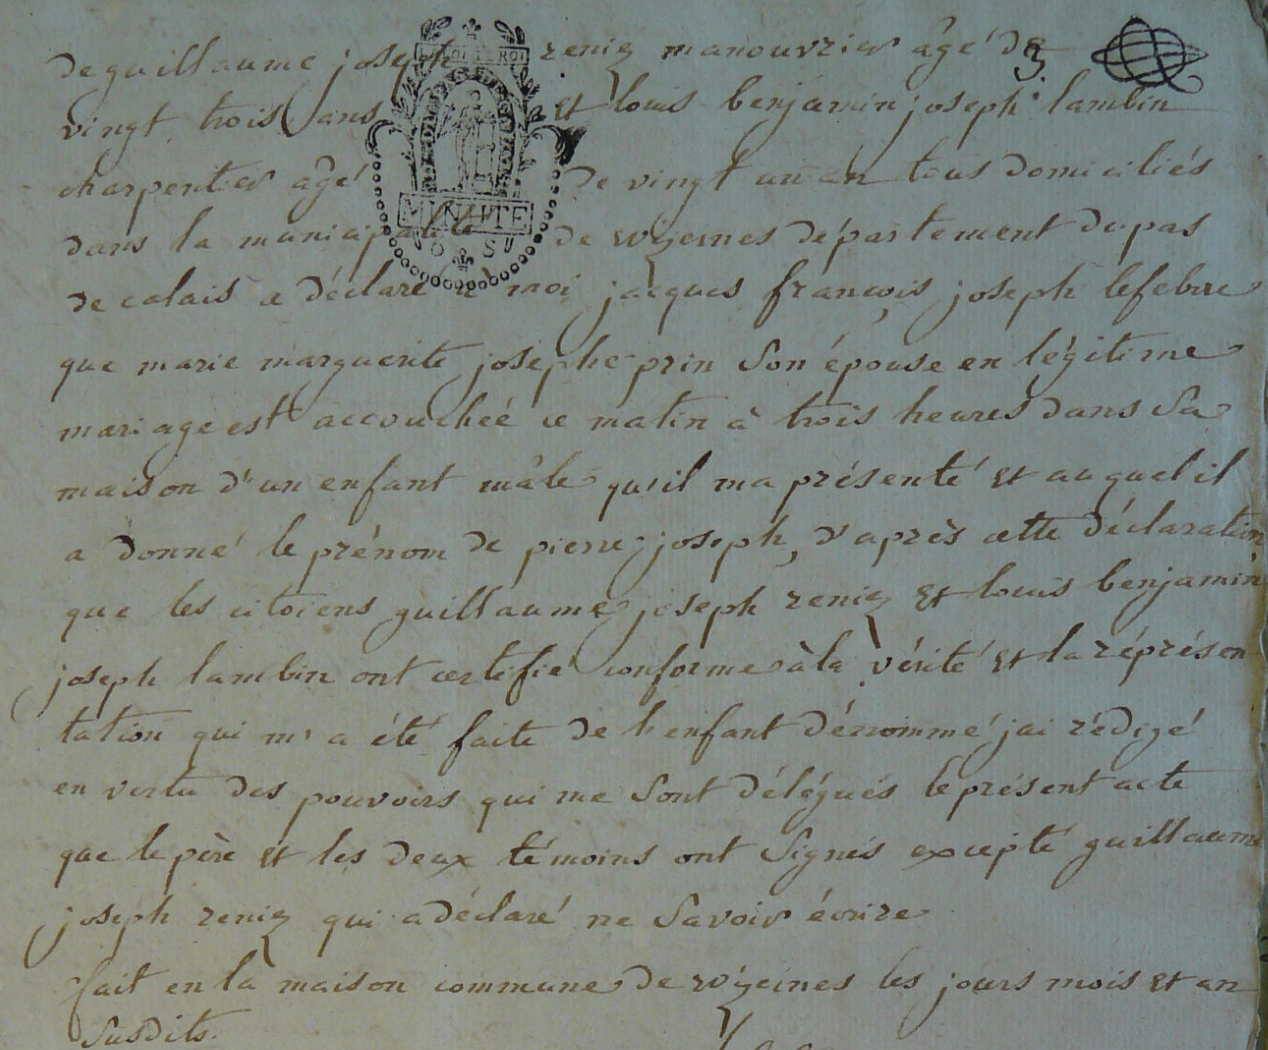 de guillaume joseph reniez manouvrier âgé de
3.
vingt trois ans et louis benjamin joseph lambin
charpentier âgé de vingt un an tous domiciliés
dans la municipalité de wizernes département du pas
de calais a déclaré à moi jacques françois joseph lefebvre
que marie marguerite josephe prin Son épouse en légitime
mariage est accouchéé ce matin à trois heures dans Sa
maison d'un enfant mâle qu'il ma présenté et auquel il
a donné le prénom de pierre joseph, d'après cette déclaration
que les citoiens guillaume joseph reniez et louis benjamin
joseph lambin ont certifié conforme à la vérité et la réprésen
tation qui m'a été faite de l'enfant dénommé jai rédigé
en vertu des pouvoirs qui me Sont délégués le présent acte
que le père et les deux témoins ont Signés excepté guillaume
joseph reniez qui a déclaré ne Savoir écrire
fait en la maison commune de wizernes les jours mois et an
Susdits.
LA LOI LE ROI
MINUTE
S